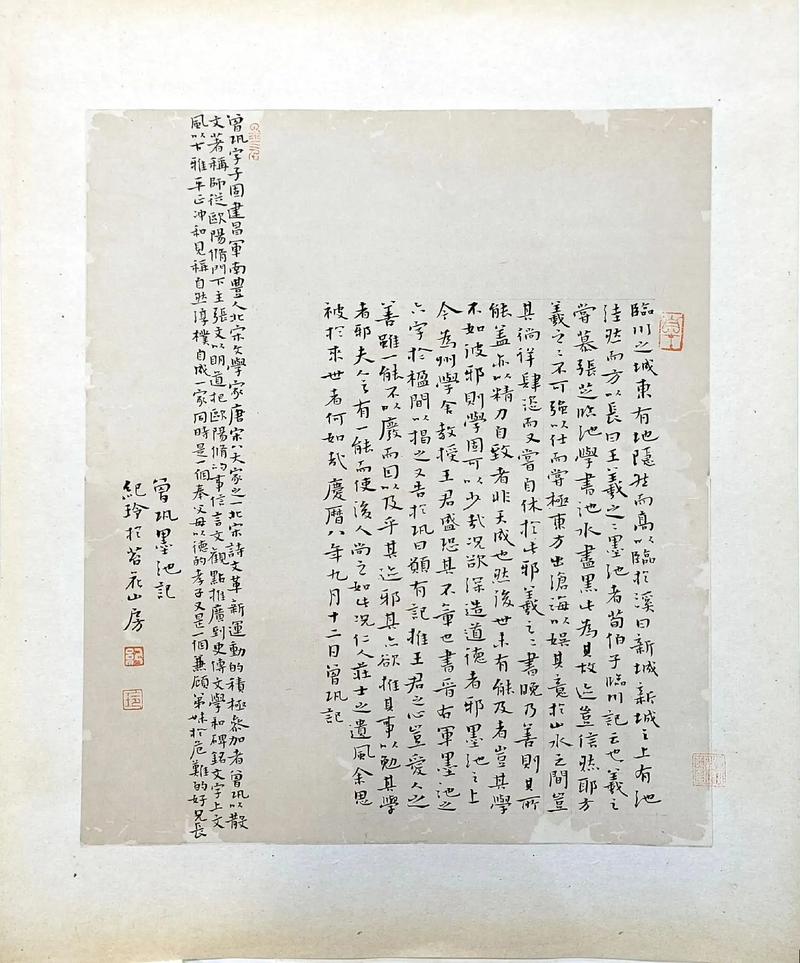 臨川之城東有地隱然而高以臨於溪曰新城新城之上有池
洼然而方以長曰王羲之之墨池者荀伯子臨川記云也羲之
嘗慕張芝臨池學書池水盡黑此為其故迹豈信然耶方
羲之之不可強以仕而嘗極東方出滄海以娛其意於山水之間豈
其徜徉肆恣而又嘗自休於此邪羲之之書晚乃善則其所
能蓋亦以精力自致者非天成也然後世未有能及者豈其學
不如彼邪則學固可以少哉況欲深造道德者邪墨池之上
今為州學舍教授王君盛恐其不章也書晉右軍墨池之
六字於楹間以揭之又告於巩曰願有記推王君之心豈愛人之
善雖一能不以廢而因以及乎其迹邪其亦欲推其事以勉其學
者邪夫人之有一能而使後人尚之如此況仁人莊士之遺風余思
被於來世者何如哉慶曆八年九月十二日曾巩記
曾巩字子固建昌軍南豐人北宋文學家唐宋八大家之一北宋詩文革新運動的積極參加者曾巩以散
文著稱師從歐陽脩門下主張文以明道把歐陽脩的事信言文觀點推廣到史傳文學和碑銘文字上文
風以古雅平正沖和見稱自然淳樸自成一家同時是一個奉父母以德的孝子又是一個兼顧弟妹於危難的好兄長
曾巩墨池記
紀玲於苔花山房